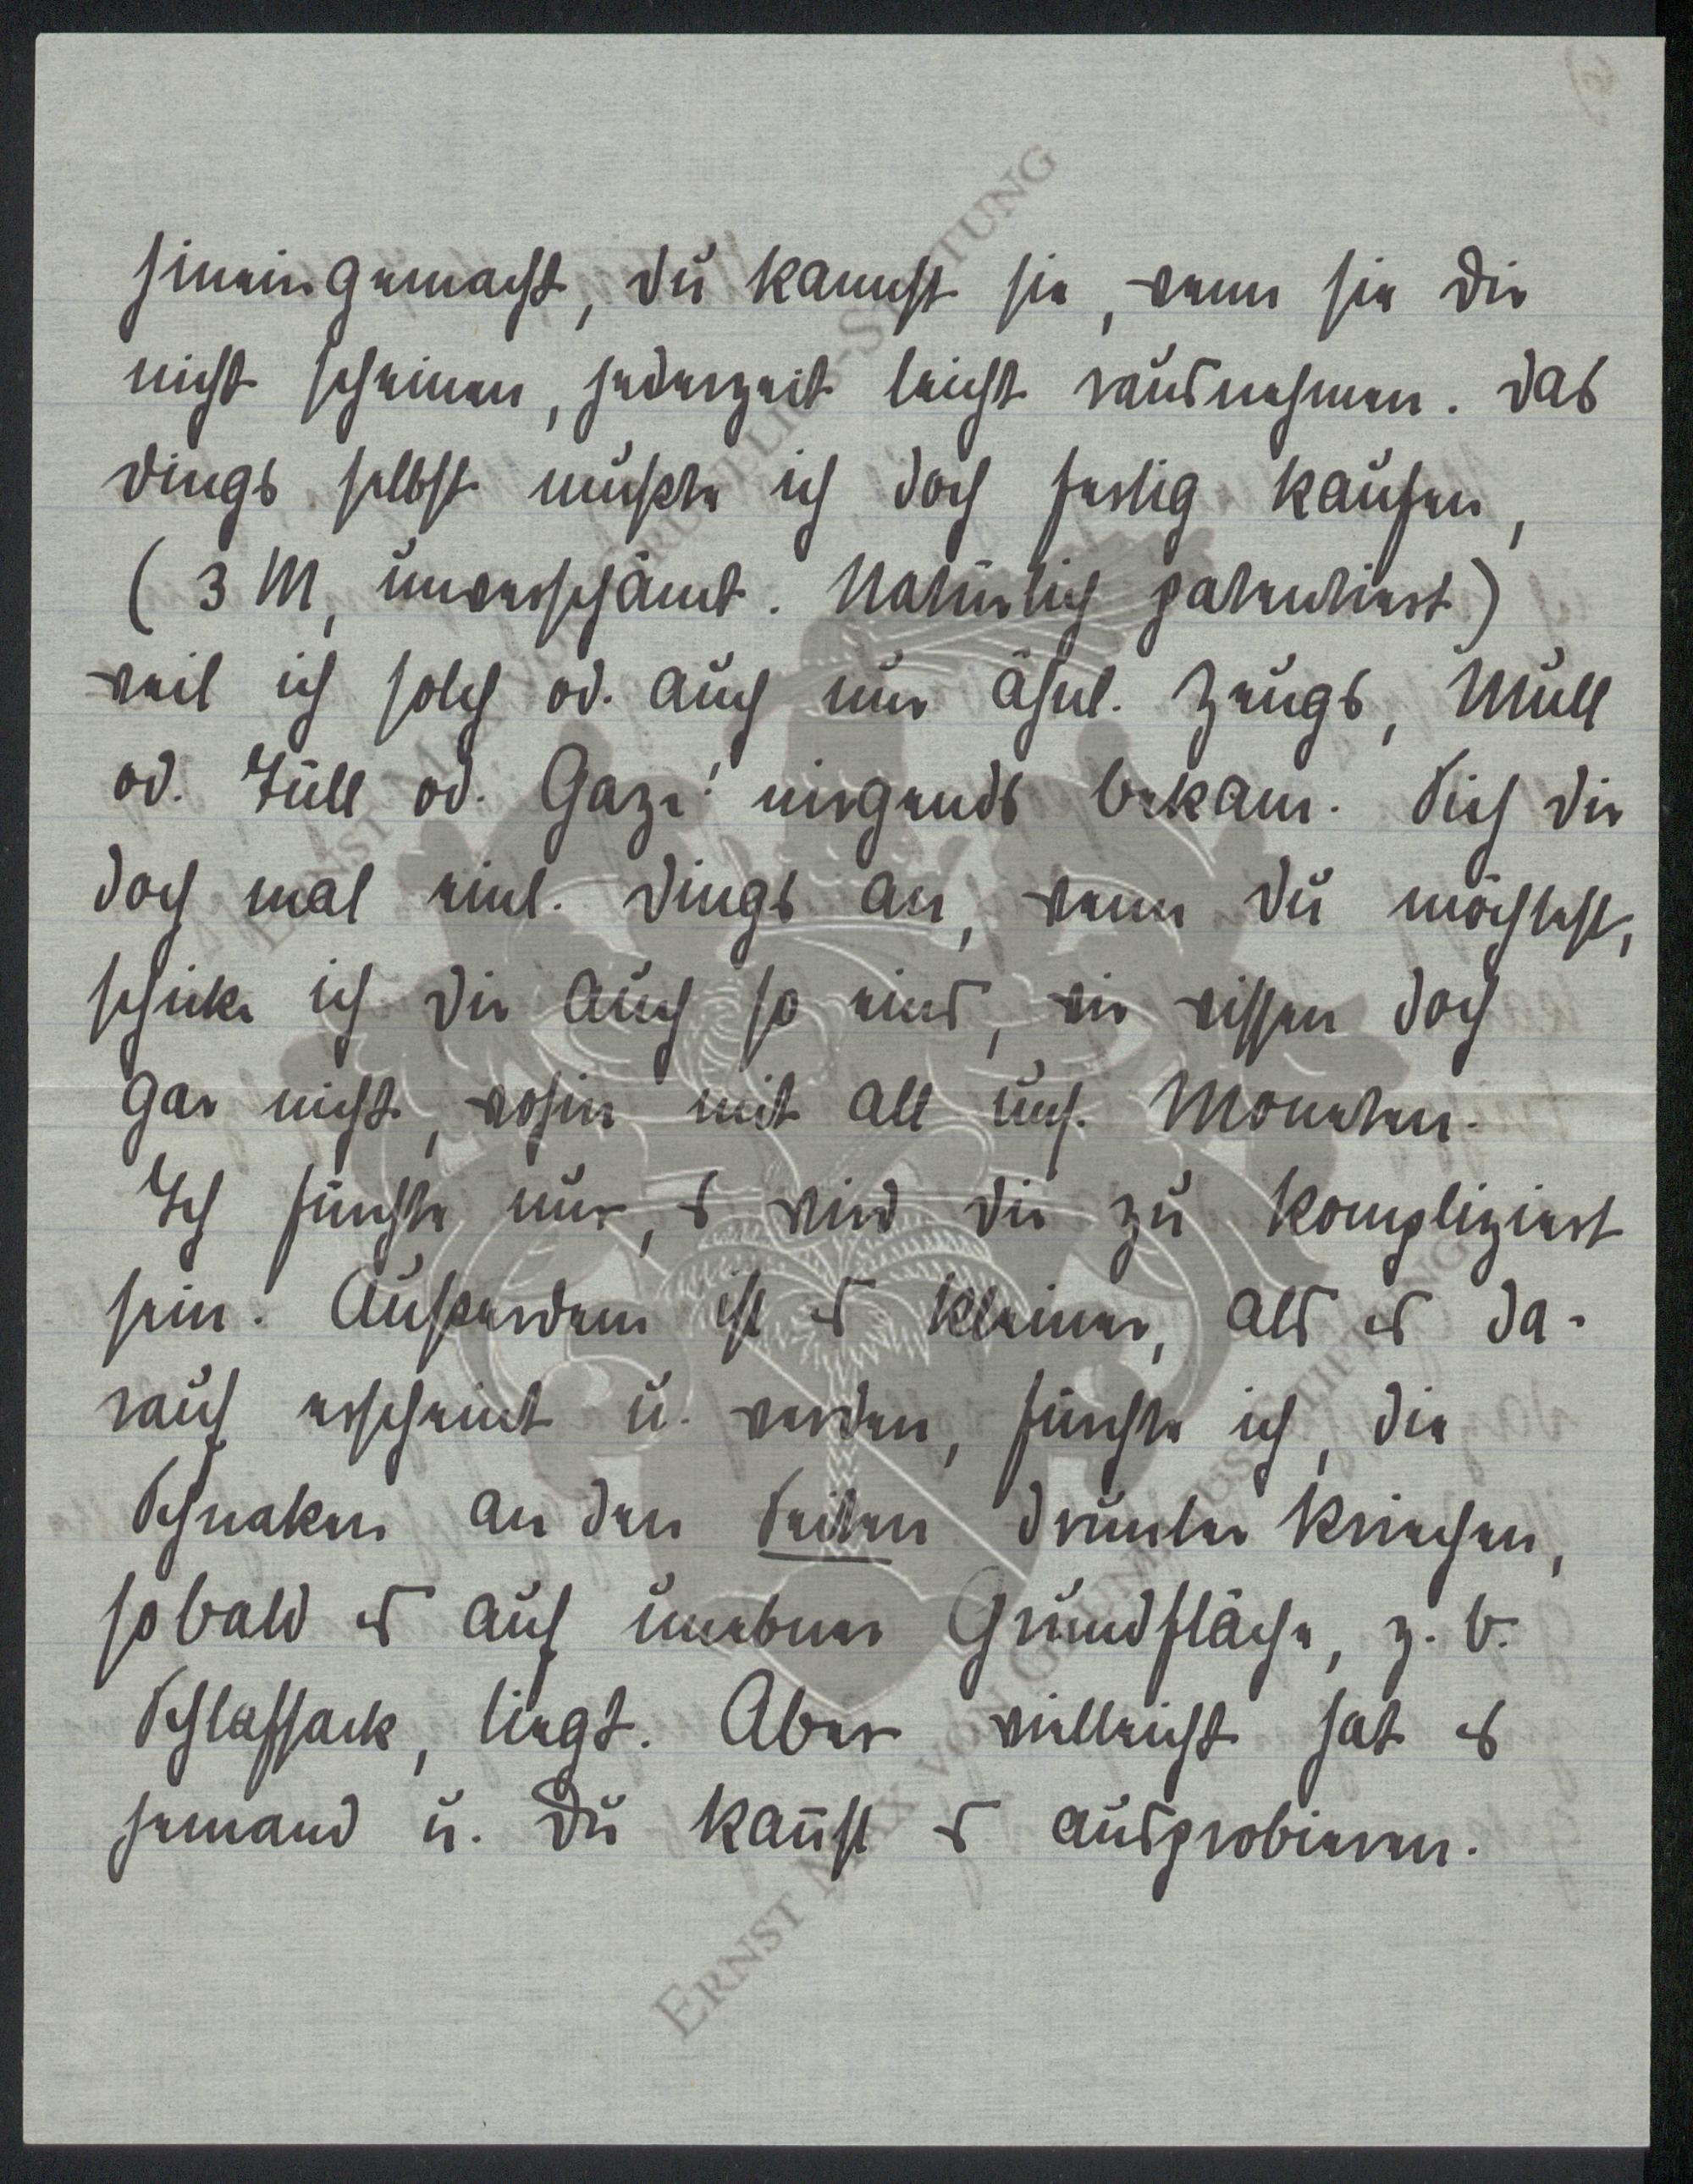 hineingemacht, du kannst sie, wenn sie Dir
nicht scheinen, jederzeit leicht rausnehmen. Das
Dings selbst mußte ich doch fertig kaufen,
(3 M, unverschämt. Natürlich patentiert)
weil ich solch od. auch nur ähnl. Zeugs, Mull
od. Tüll od. Gaze! nirgends bekam. Sieh Dir
doch mal einl. Dings an, wenn Du möchtest,
schicke ich Dir auch so eins, wir wissen doch
gar nicht, wohin mit all uns. Moneten.
Ich fürchte nur, es wird Dir zu kompliziert
sein. Außerdem ist es kleiner, als es da-
rauf erscheint u. werden, fürchte ich, die
Schnaken an den Seiten drunter kriechen,
sobald es auf unebner Grundfläche, z. B.
Schlafsack, liegt. Aber vielleicht hat es
jemand u. Du kannst es ausprobieren.
ERNST MAX VON GRUNELIUS-STIFTUNG
ERNST MAX VON GRUNELIUS-STIFTUNG